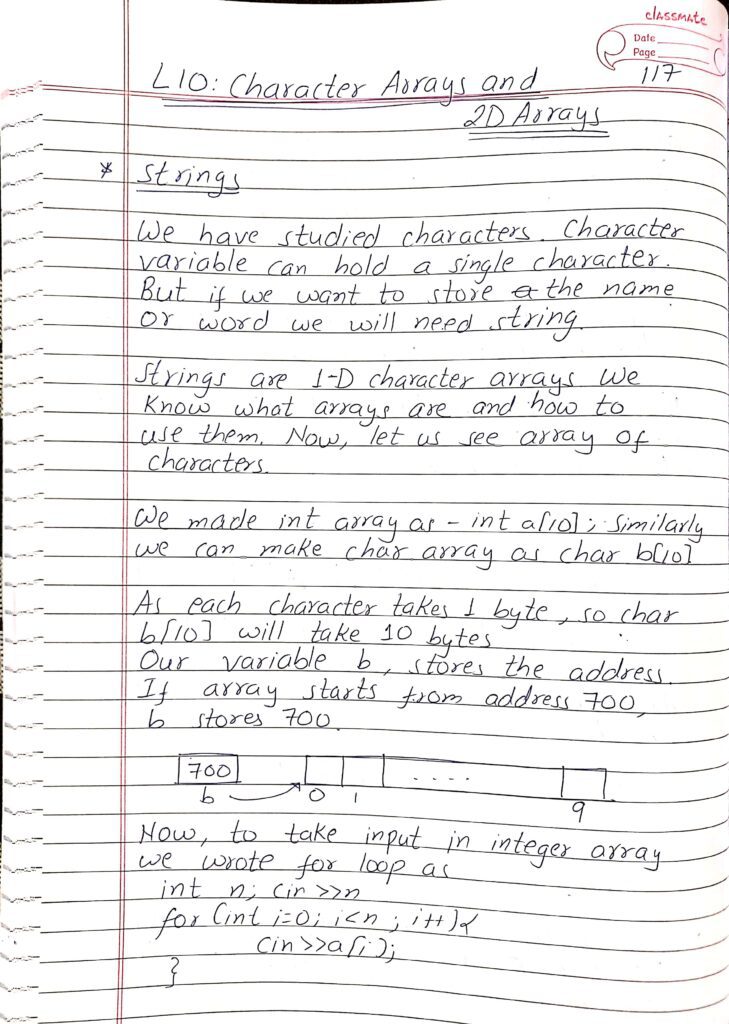 classmate
Date
Page
117
L10: Character Arrays and
2D Arrays
* Strings
We have studied characters. Character
variable can hold a single character.
But if we want to store the name
or word we will need string.
Strings are 1-D character arrays We
know what arrays are and how to
use them. Now, let us see array of
characters.
We made int array as - int a[10]; Similarly
we can make char array as char b[10]
As each character takes 1 byte, so char
b[10] will take 10 bytes
Our variable b, stores the address.
If array starts from address 700,
b stores 700.
700 . . . . .
b 0 1 9
Now, to take input in integer array
we wrote for loop as
int n; cin >>n
for (int i=0; i<n ; i++){
cin>>a[i];
}